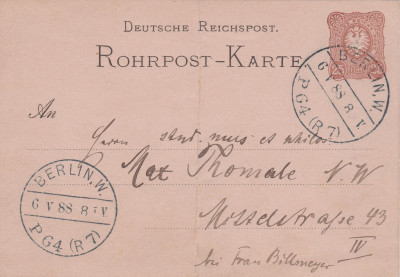 DEUTSCHE REICHSPOST.
ROHRPOST-KARTE
BERLIN, W.
6 V 88 8 V.
P G4 (R 7)
An
Herrn stud. mus et philos.
Max Thomale N. W
Mittelstraße 43
IV
bei Frau Billmeyer
BERLIN, W.
6 V 88 8 V
P G4 (R 7)